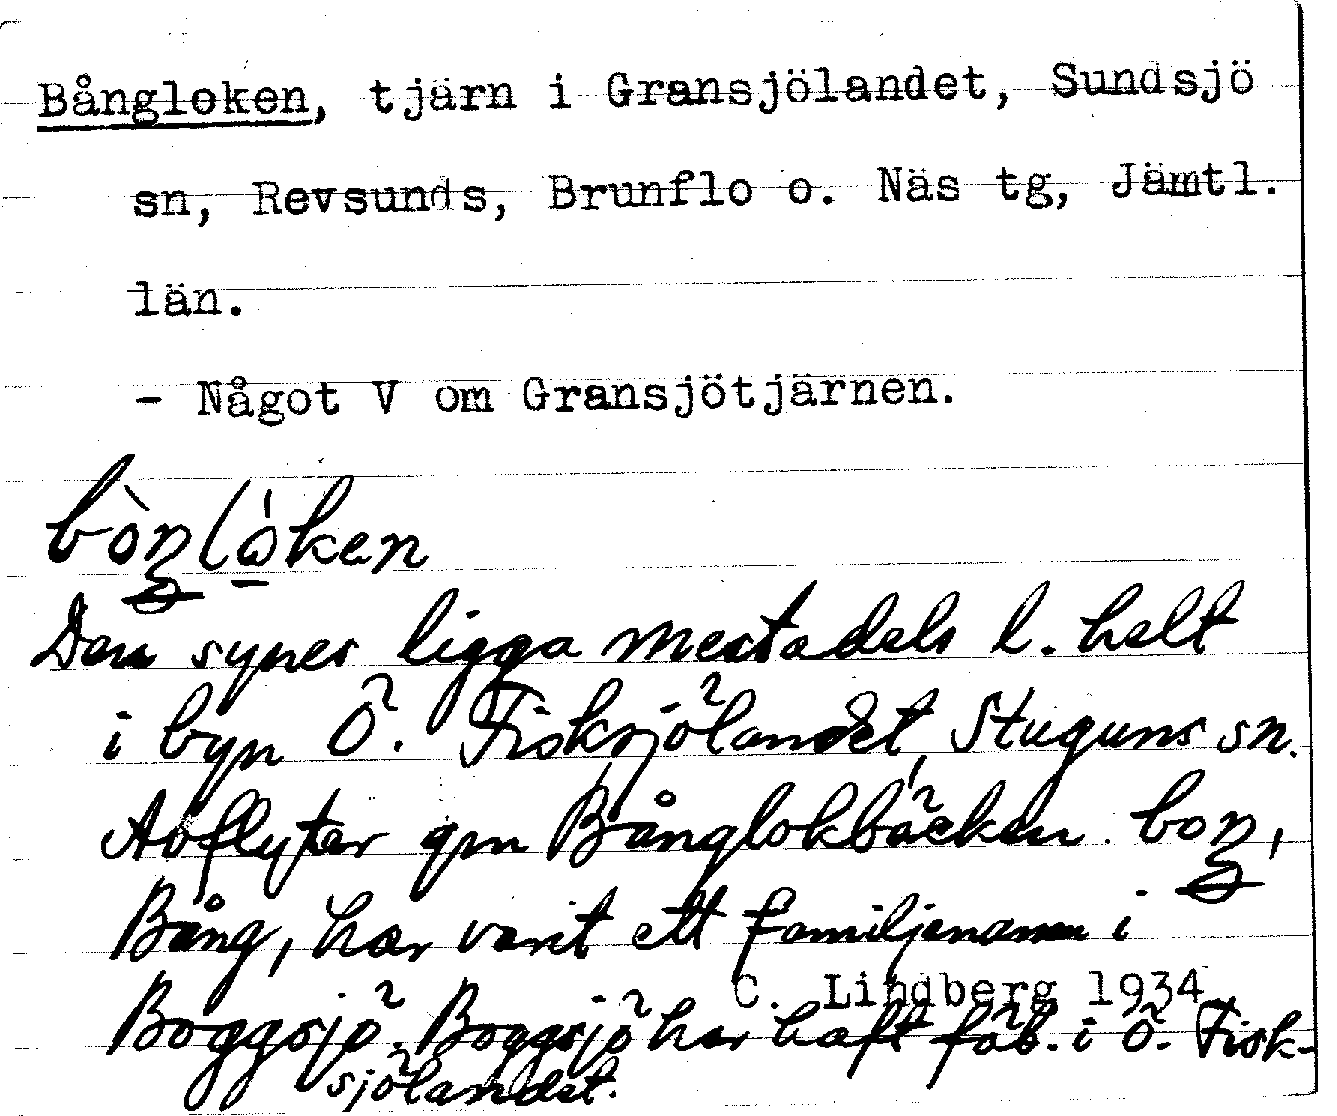 Bångloken, tjärn i Gransjölandet, Sundsjö
sn, Revsunds, Brunflo o. Näs tg, Jämtl.
län.
- Något V om Gransjötjärnen.
Den synes ligga mestadels l. helt
i byn Ö. Fisksjölandet, Stuguns sn.
Avflyter gm Bånglokbäcken.
Bång, har varit ett familjenamn i
C. Lindberg 1934
Boggsjö. Boggsjö har haft fäb. i Ö. Fisk-
sjölandet.